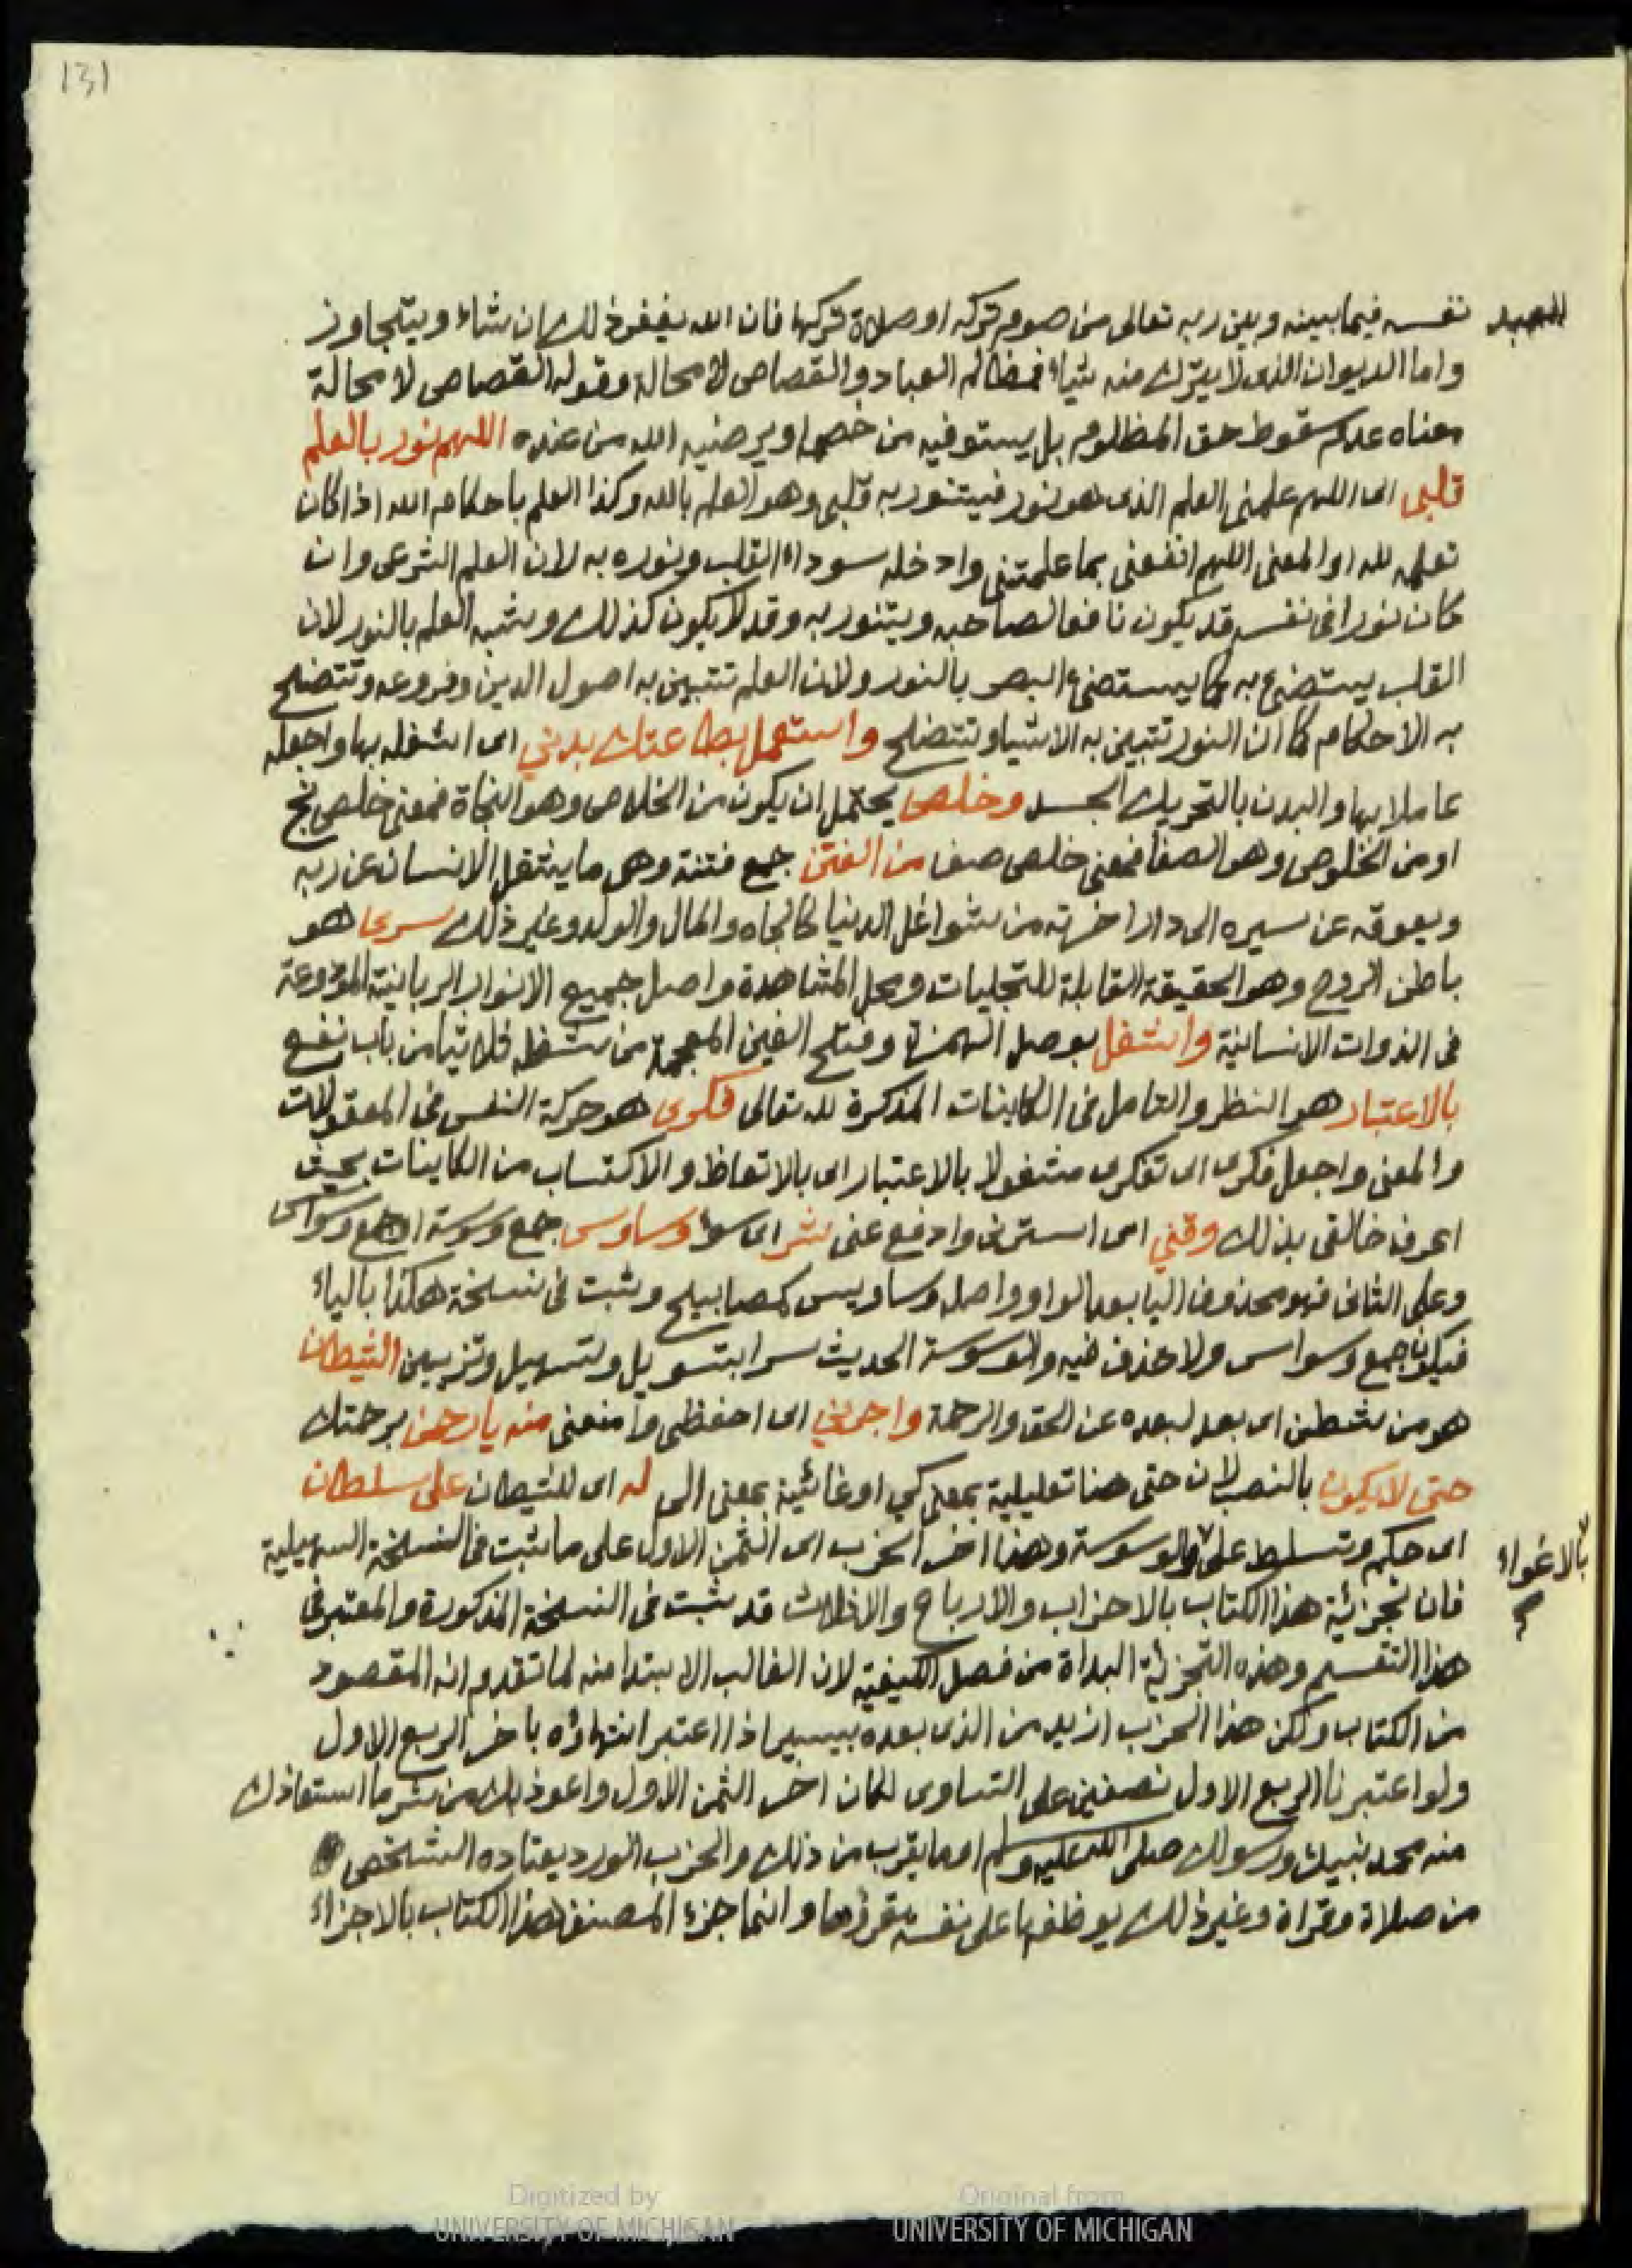 131
العبد نفسه فيما بينه وبين ربه تعالى من صوم تركه او صلاة تركها فان الله يغفر ذلك ان شاء ويتجاوز
واما الديوان الذى لا يترك منه شياء فمظالم العباد والقصاص لا محالة وقوله القصاص لا محالة
معناه عدم سقوط حق المظلوم بل يستوفيه من خصمه او يرضيه الله من عنده اللهم نور بالعلم
قلبى اى اللهم علمنى العلم الذى هو نور فيتنور به قلبى وهو العلم بالله وكذا العلم باحكام الله اذا كان
تعلمه لله او المعنى اللهم انفعنى بما علمتنى وادخله سوداء القلب ونوره به لان العلم الشرعى وان
كان نورا فى نفسه قد يكون نافعا لصاحبه ويتنور به وقد لا يكون كذلك وشبه العلم بالنور لان
القلب يستضىء به كما يستضىء البصر بالنور ولان العلم تتبين به اصول الدين وفروعه وتتضح
به الاحكام كما ان النور تتبين به الاشيا وتتضح واستعمل بطاعتك بدني اى اشغله بها واجعله
عاملا بها والبدن بالتحريك الجسد وخلص يحتمل ان يكون من الخلاص وهو النجاة فمعنى خلص نج
او من الخلوص وهو الصفا فمعنى خلص صف من الفتن جمع فتنة وهى ما يشغل الانسان عن ربه
ويعوقه عن سيره الى دار اخرته من شواغل الدنيا كالجاه والمال والولد وغير ذلك سرى هو
باطن الروح وهو الحقيقة القابلة للتجليات ومحل المشاهدة واصل جميع الانوار الربانية المودوعة
فى الذوات الانسانية واشغل بوصل الهمزة وفتح الغين المعجمة من شغل ثلاثيا من باب نفع
بالاعتبار هو النظر والتامل فى الكاينات المذكرة لله تعالى فكرى هو حركة النفس فى المعقولات
والمعنى واجعل فكرى اى تفكرى مشغولا بالاعتبار اى بالاتعاظ والاكتساب من الكاينات بحيث
اعرف خالقى بذلك وقني اى استرنى وادفع عنى شر اى سوء وساوس جمع وسوسة او جمع وسواس
وعلى الثانى فهو محذوف اليا بعد الواو واصله وساويس كمصابيح وثبت فى نسخة هكذا بالياء
فيكون جمع وسواس ولا حذف فيه والوسوسة الحديث سرا بتسويل وتسهيل وتزيين الشيطان
هو من شطن اى بعد لبعده عن الحق والرحمة واجرني اى احفظنى وامنعنى منه يا رحمن برحمتك
حتى لا يكون بالنصب لان حتى هنا تعليلية بمعنى كي او غائية بمعنى الى له اى للشيطان على سلطان
اى حكم وتسلط على والوسوسة وهذا اخر الحزب اى الثمن الاول على ما ثبت فى النسخة السهيلية
بالاغواء صح
فان تجزئية هذا الكتاب بالاحزاب والارباع والاثلاث قد ثبت فى النسخة المذكورة والمعتبر فى
هذا التقسيم وهذه التجزئية البداة من فصل الكيفية لان الغالب الابتدا منه لما تقدم انه المقصود
من الكتاب ولكن هذا الحزب ازيد من الذى بعده بيسير اذا اعتبر انتهاؤه باخر الربع الاول
ولو اعتبرنا الربع الاول نصفين على التساوى لكان اخر الثمن الاول واعوذ بك من شر ما استعاذك
منه محمد نبيك ورسولك صلى الله عليه وسلم او ما يقرب من ذلك والحزب الورد يعتاده الشخص
من صلاة وقراة وغير ذلك يوظفها على نفسه يقرؤها وانما جزء المصنف هذا الكتاب بالاجزاء
Digitized by
UNIVERSITY OF MICHIGAN
Original from
UNIVERSITY OF MICHIGAN